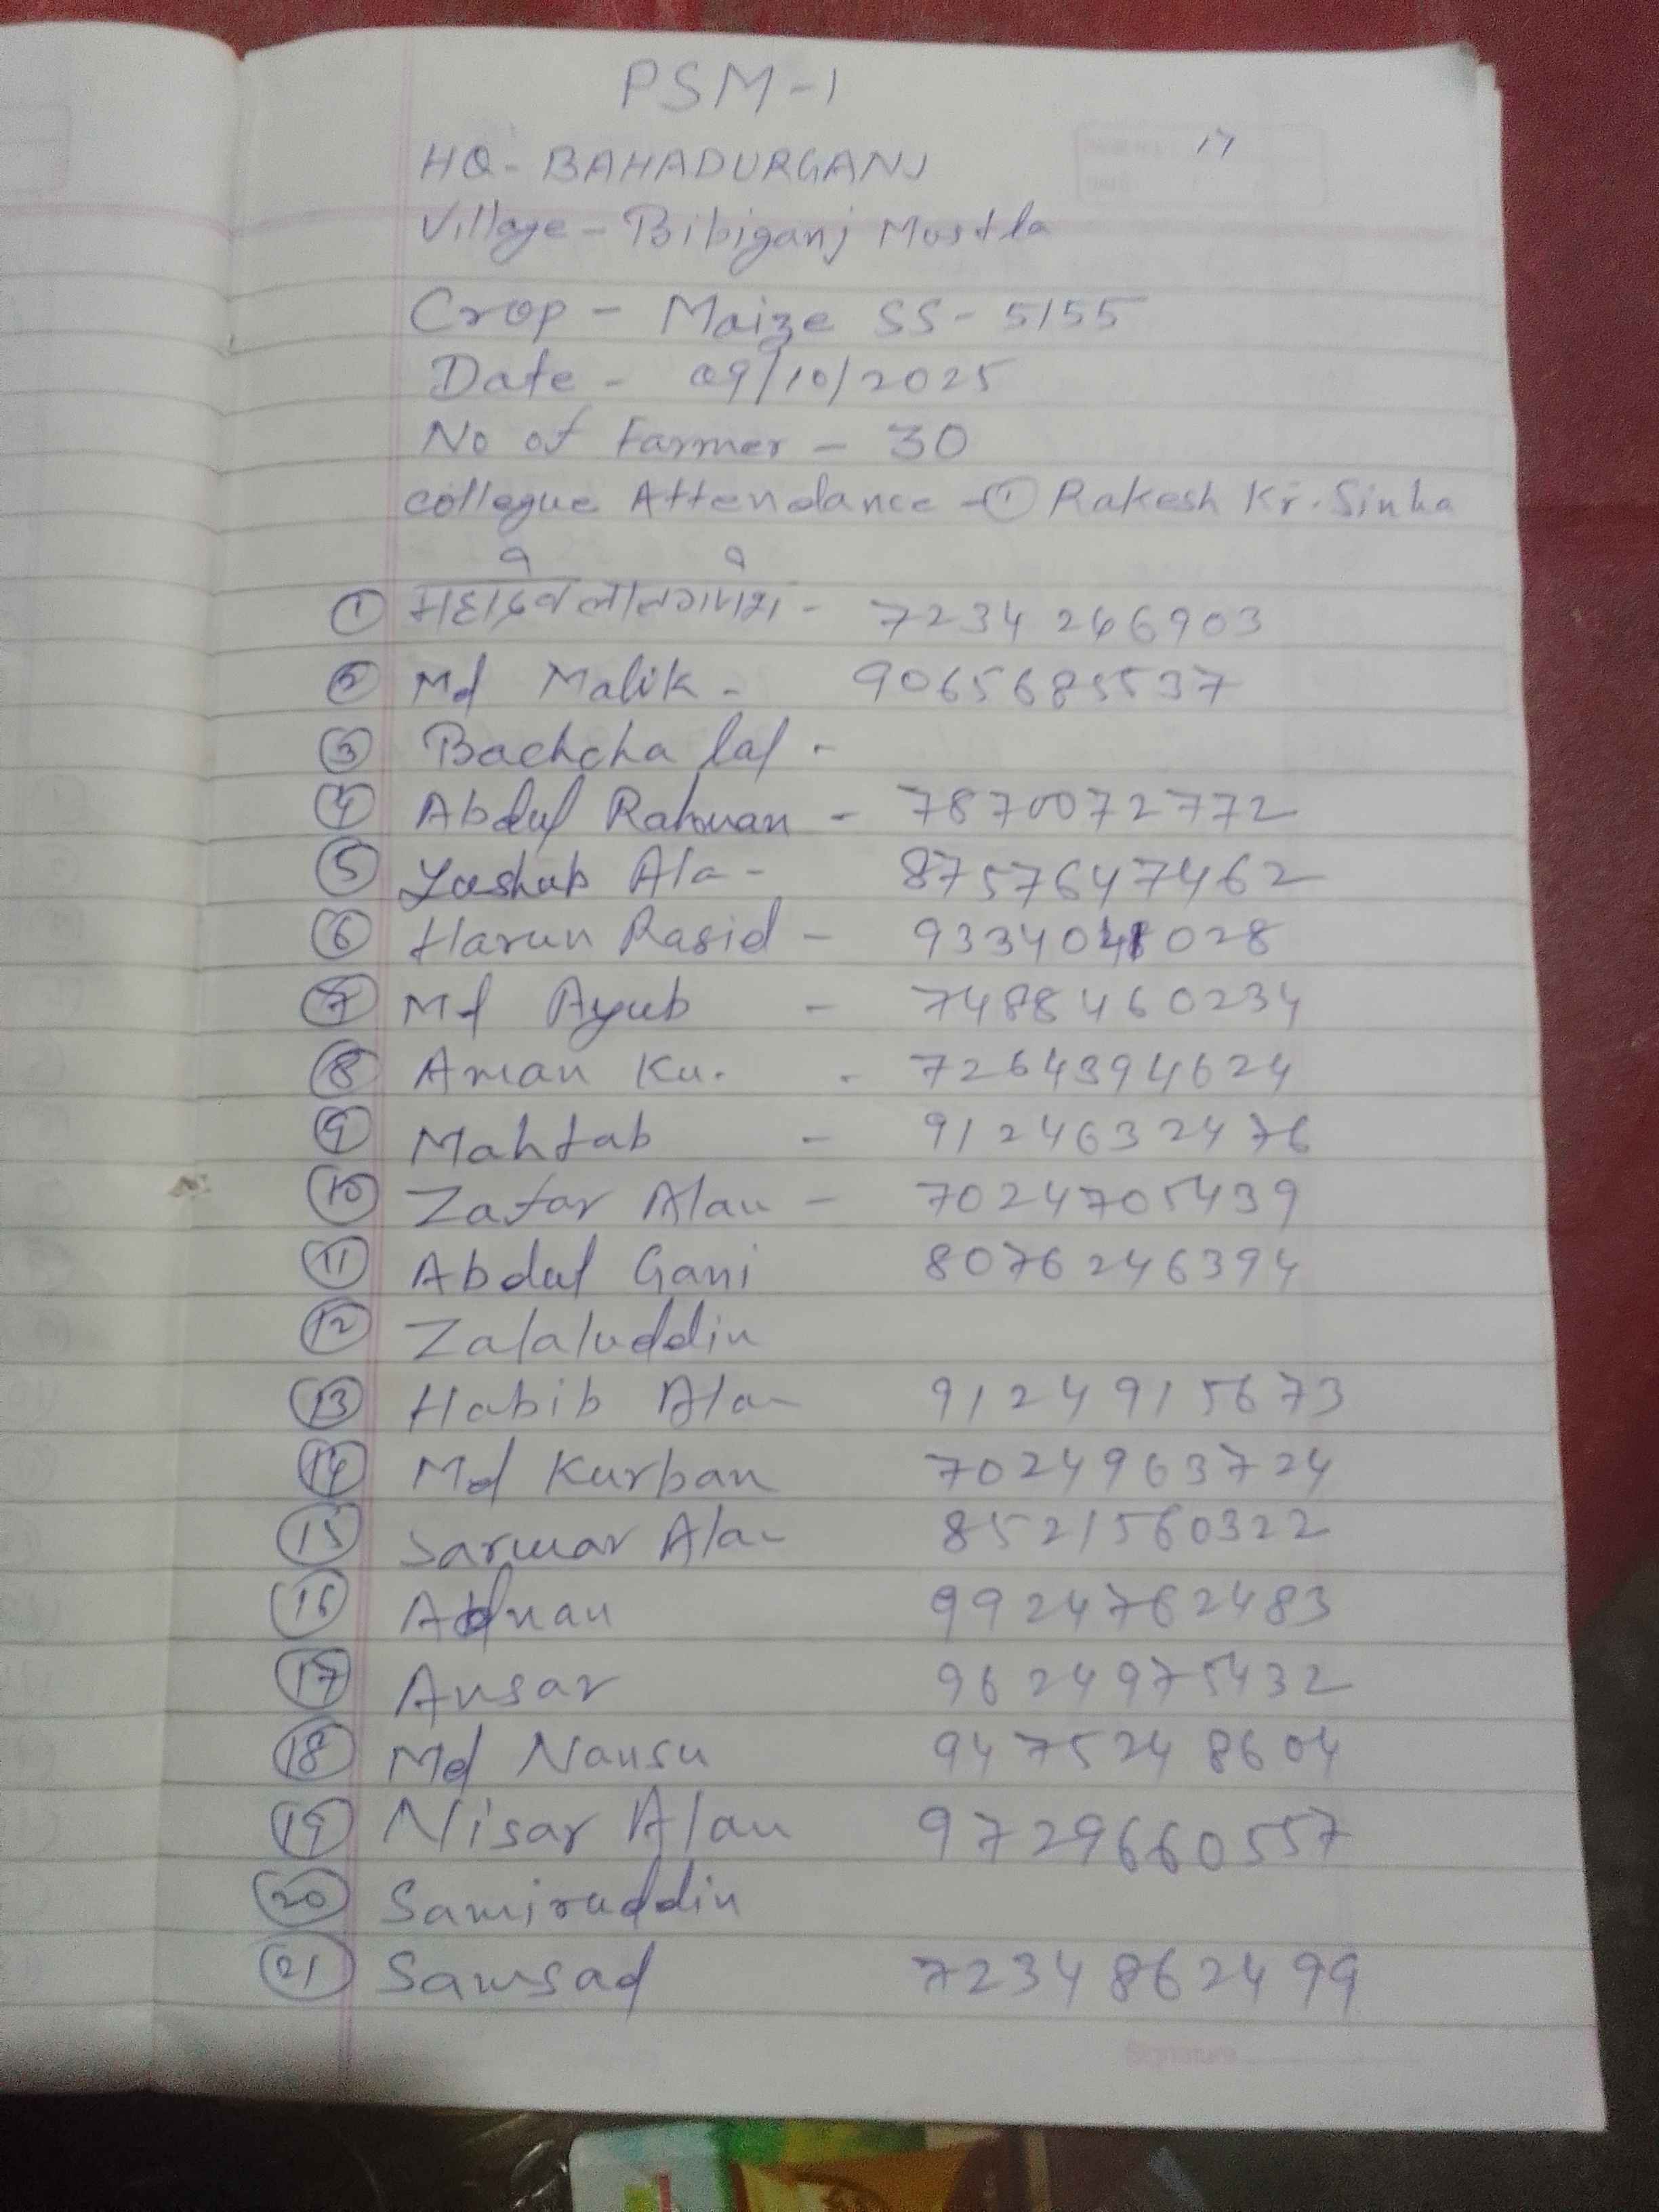 PSM-1
17
HQ- BAHADURGANJ
Village - Bibiganj Mastla
Crop - Maize SS-5155
Date - 09/10/2025
No of Farmer - 30
collegue Attendance - ① Rakesh Kr. Sinha
① महादेव लाल - 7234246903
② Md Malik - 9065685537
③ Bachcha lal -
④ Abdul Rahman - 7870072772
⑤ Yashub Ala - 8757647462
⑥ Harun Rasid - 9334048028
⑦ Md Ayub - 7488460234
⑧ Aman Ku. - 7264394624
⑨ Mahtab - 9124632476
⑩ Zafar Alam - 7024705439
⑪ Abdul Gani 8076246394
⑫ Zalaluddin
⑬ Habib Ala 9124915673
⑭ Md Kurban 7024963724
⑮ Sarwar Ala 8521560322
⑯ Adnan 9924762483
⑰ Ansar 9624975432
⑱ Md Nansu 9475248604
⑲ Nisar Alam 9729660557
⑳ Samiruddin
㉑ Samsad 7234862499
Signature